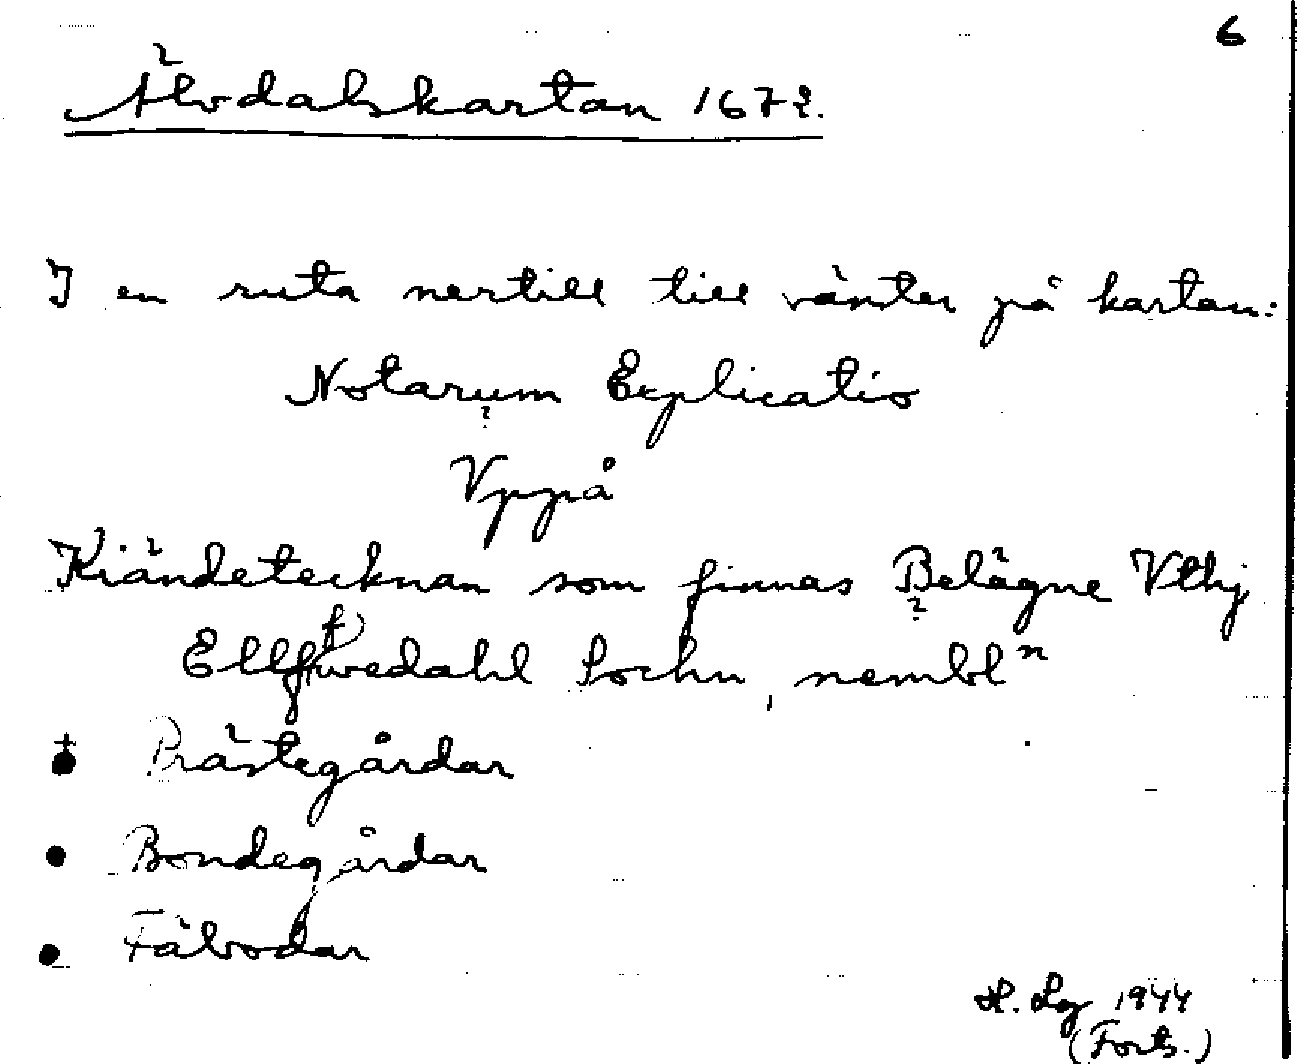 6
Älvdalskartan 1672.
I en ruta nertill till vänster på kartan:
Notarum Explicatio
Vppå
Kiändetecknan som finnas Belägne Vthj
Ellfwedahl Sochn, nembl n
Prästegårdar
Bondegårdar
Fäbodar
H. Lg 1944
(Forts.)